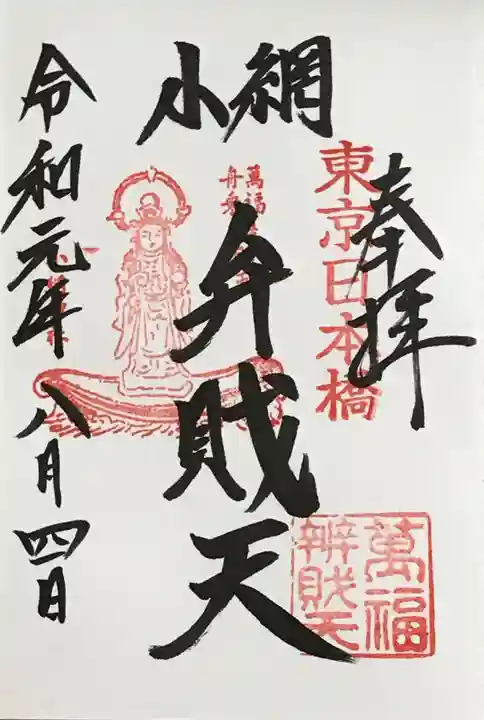 奉拝
東京日本橋
萬福
辨戝天
小網
弁戝天
萬福
令和元年八月四日